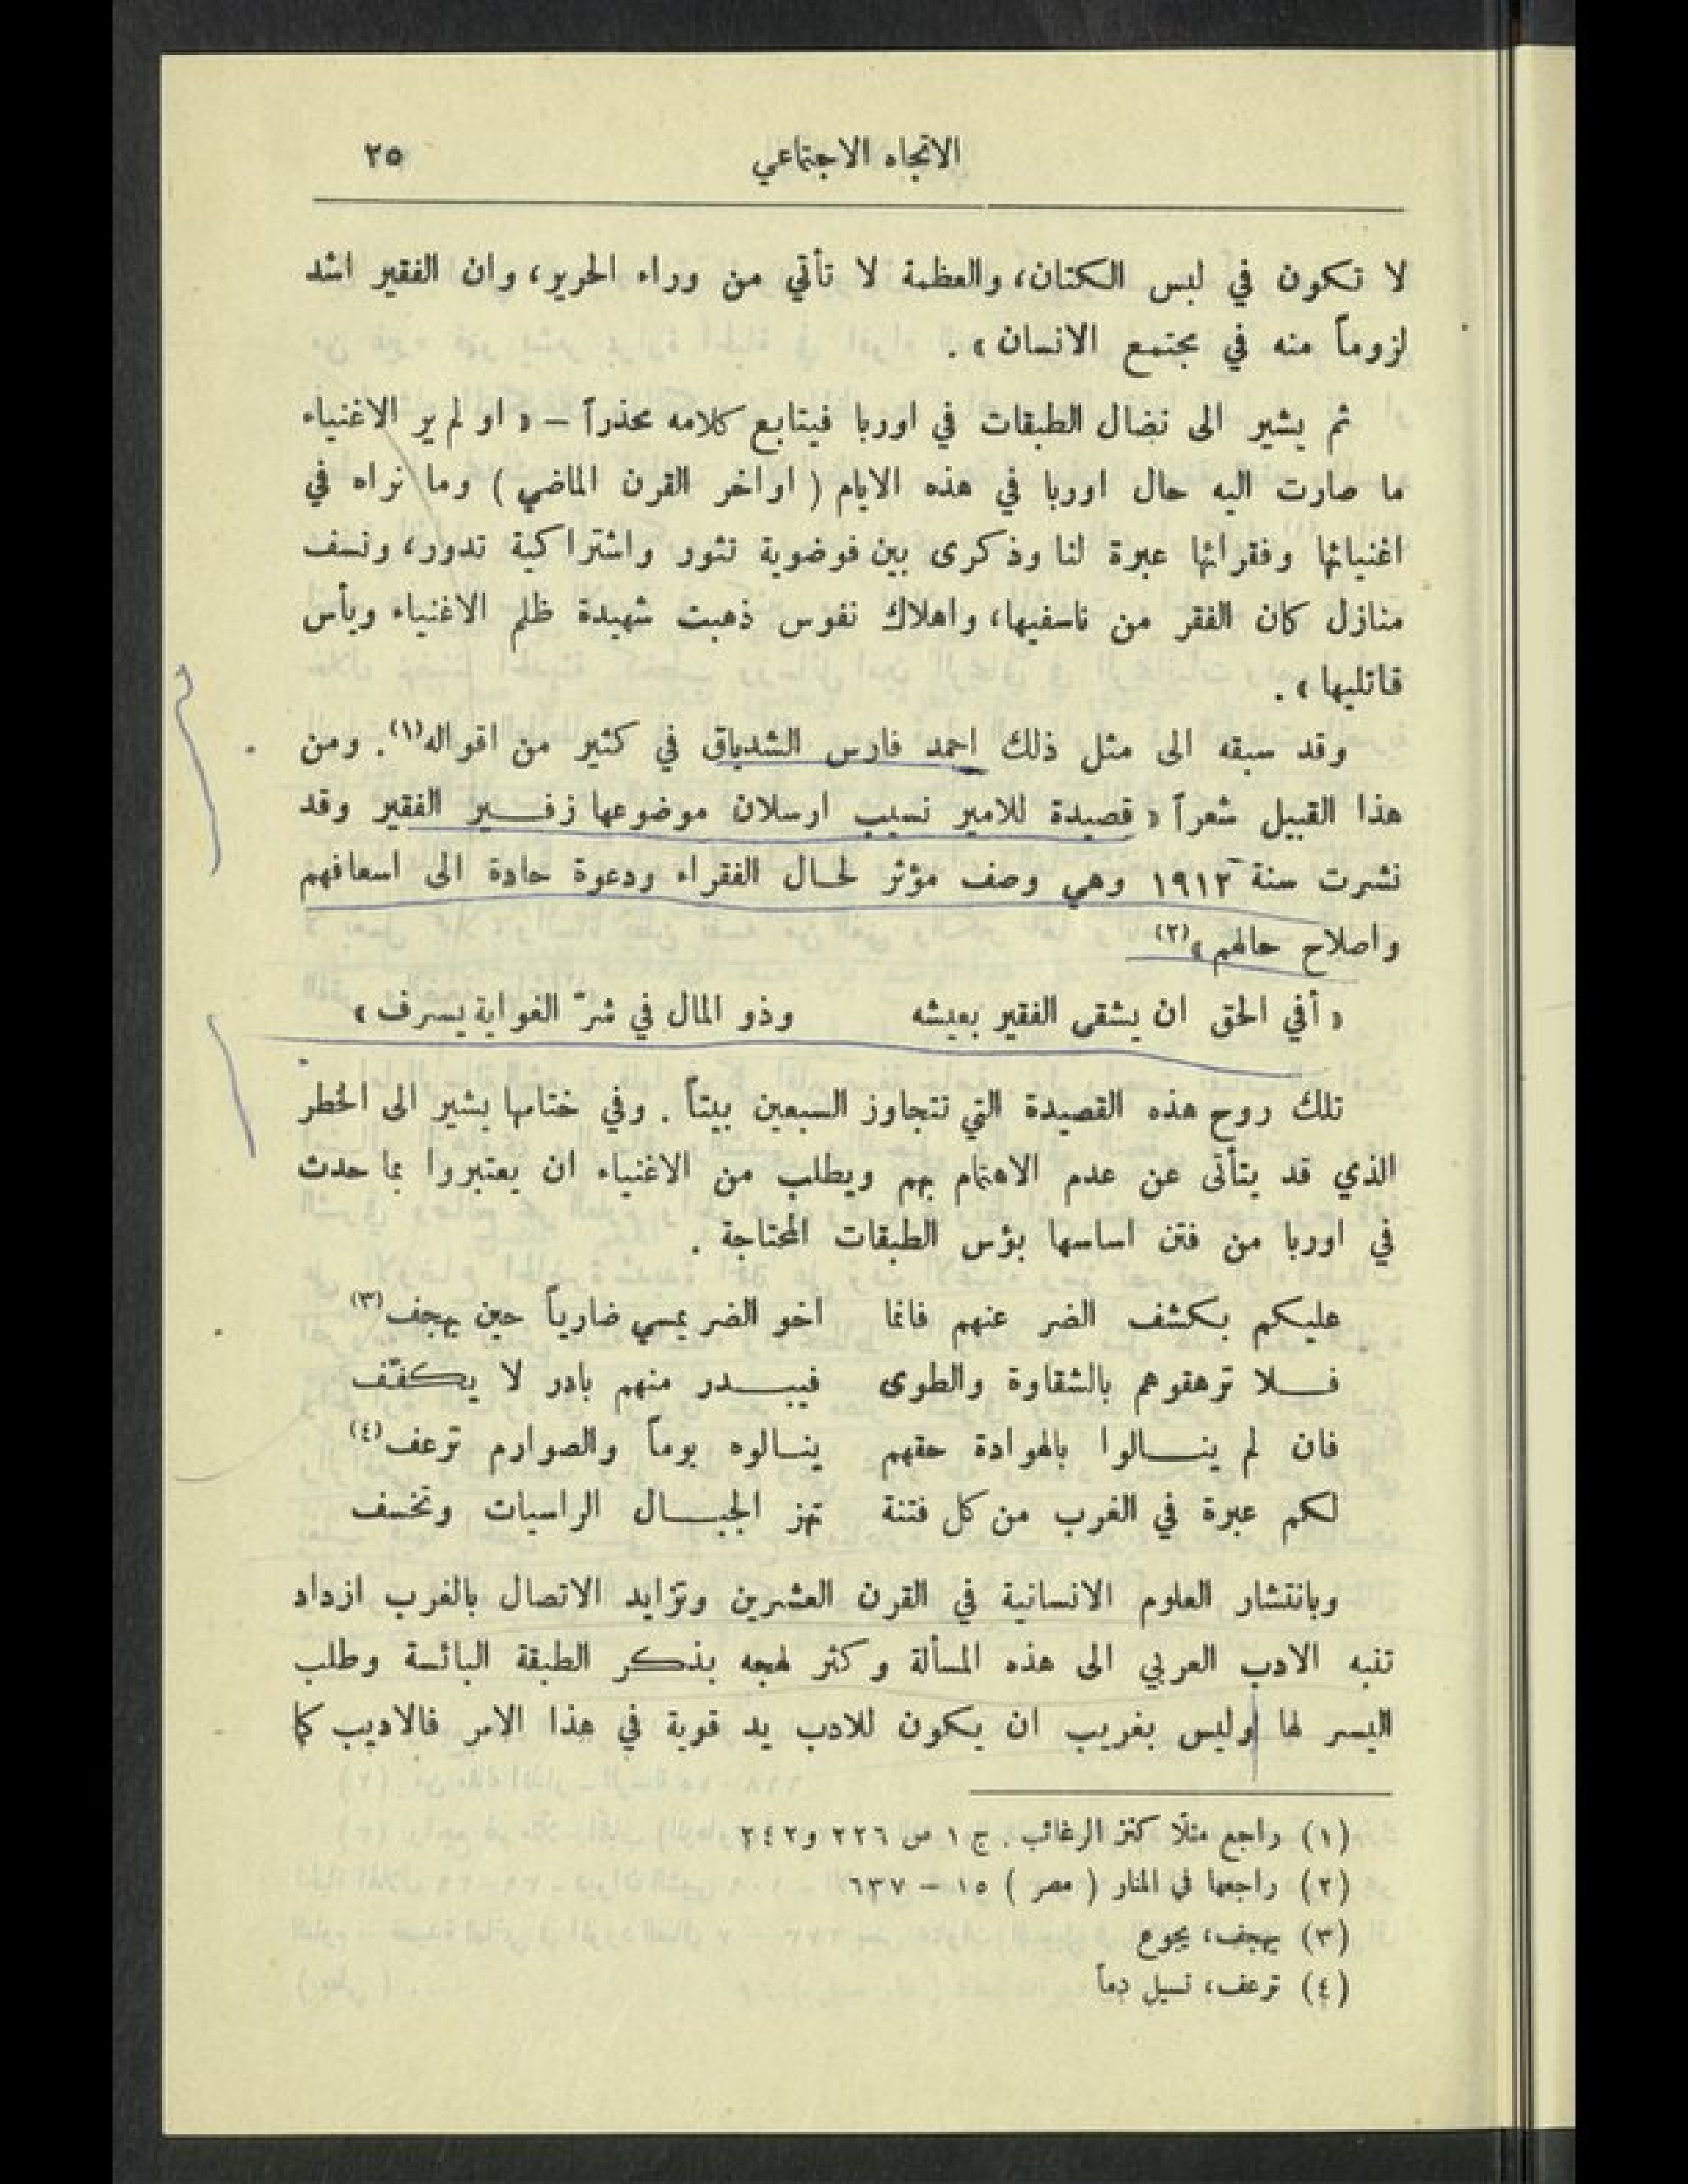 الاتجاه الاجتماعي ٢٥
لا تكون في لبس الكتان، والعظمة لا تأتي من وراء الحرير، وان الفقير اشد
لزوماً منه في مجتمع الانسان » .
ثم يشير الى نضال الطبقات في اوربا فيتابع كلامه محذراً – « او لم ير الاغنياء
ما صارت اليه حال اوربا في هذه الايام ( اواخر القرن الماضي ) وما نراه في
اغنيائها وفقرائها عبرة لنا وذكرى بين فوضوية تثور واشتراكية تدور، ونسف
منازل كان الفقر من ناسفيها، واهلاك نفوس ذهبت شهيدة ظلم الاغنياء وبأس
قاتليها » .
وقد سبقه الى مثل ذلك احمد فارس الشدياق في كثير من اقواله(١). ومن
هذا القبيل شعراً « قصيدة للامير نسيب ارسلان موضوعها زفير الفقير وقد
نشرت سنة ١٩١٢ وهي وصف مؤثر لحال الفقراء ودعوة حادة الى اسعافهم
واصلاح حالهم »(٢)
« أفي الحق ان يشقى الفقير بعيشه وذو المال في شرّ الغواية يسرف »
تلك روح هذه القصيدة التي تتجاوز السبعين بيتاً . وفي ختامها يشير الى الخطر
الذي قد يتأتى عن عدم الاهتمام بهم ويطلب من الاغنياء ان يعتبروا بما حدث
في اوربا من فتن اساسها بؤس الطبقات المحتاجة .
عليكم بكشف الضر عنهم فانما اخو الضر يمسي ضارياً حين يهجف(٣)
فلا ترهقوهم بالشقاوة والطوى فيبدر منهم بادر لا يكفّف
فان لم ينالوا بالهوادة حقهم ينالوه يوماً والصوارم ترعف(٤)
لكم عبرة في الغرب من كل فتنة تهز الجبال الراسيات وتخسف
وبانتشار العلوم الانسانية في القرن العشرين وتزايد الاتصال بالغرب ازداد
تنبه الادب العربي الى هذه المسألة وكثر لهجه بذكر الطبقة البائسة وطلب
اليسر لها وليس بغريب ان يكون للادب يد قوية في هذا الامر فالاديب كما
(١) راجع مثلًا كنز الرغائب . ج ١ ص ٢٢٦ و٢٤٢
(٢) راجعها في المنار ( مصر ) ١٥ – ٦٣٧
(٣) يهجف، يجوع
(٤) ترعف، تسيل دماً